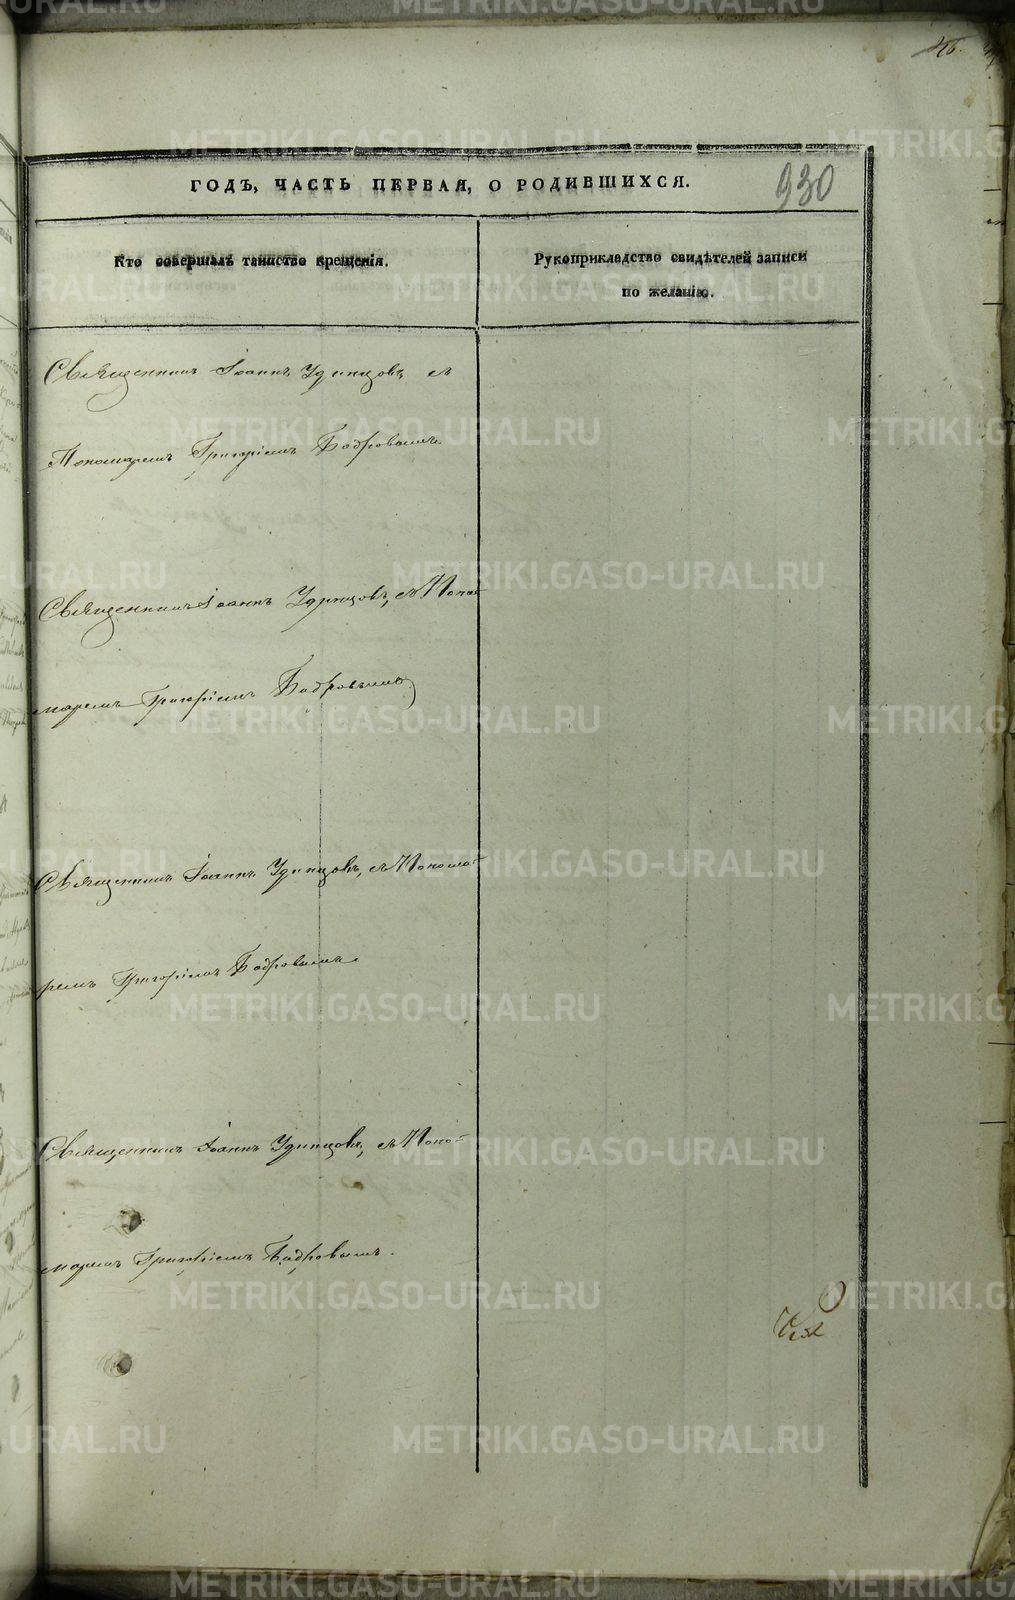 930
ГОДЪ, ЧАСТЬ ПЕРВАЯ, О РОДИВШИХСЯ.
Кто совершалъ таинство крещенія.
Рукоприкладство свидѣтелей записи
по желанію.
Священникъ Іоаннъ Удинцовъ съ
Пономаремъ Григоріемъ Бодровымъ
Священникъ Іоаннъ Удинцовъ, съ Поно
маремъ Григоріемъ Бодровымъ
Священникъ Іоаннъ Удинцовъ, съ Понома-
ремъ Григоріемъ Бодровымъ.
Священникъ Іоаннъ Удинцовъ, съ Поно-
маремъ Григоріемъ Бодровымъ.
METRIKI.GASO-URAL.RU